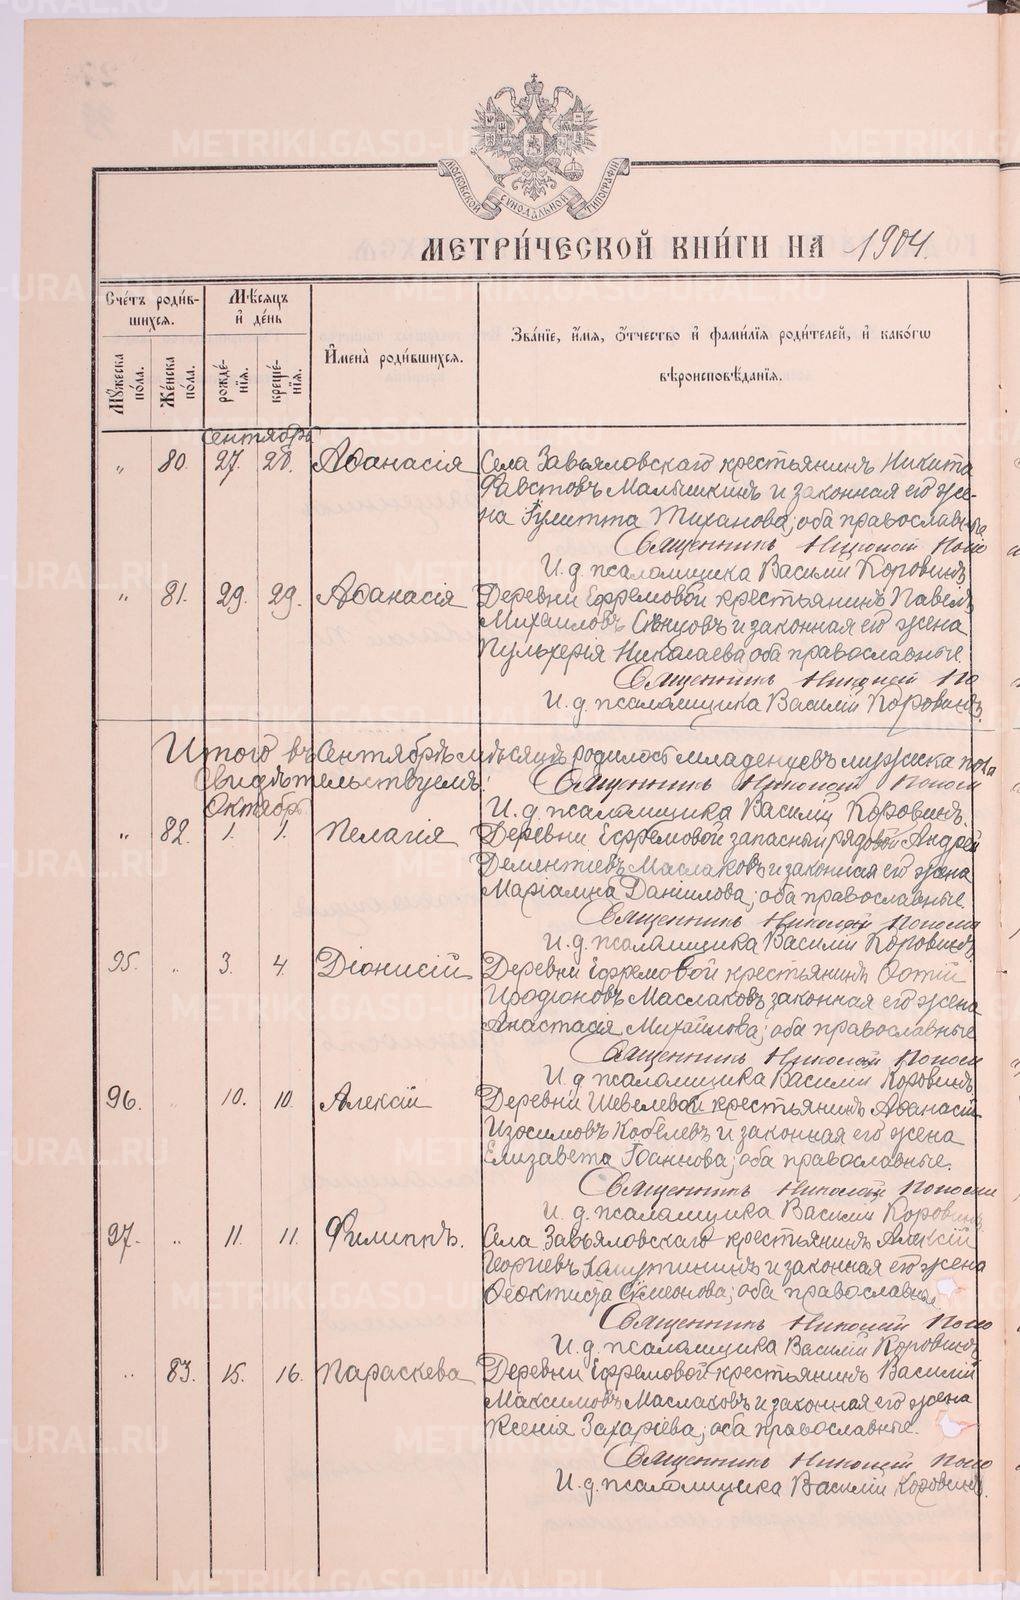 МОСКОВСКОЙ СѴНОДАЛЬНОЙ ТИПОГРАФІИ
МЕТРИ́ЧЕСКОЙ КНИ́ГИ НА 1904.
Сче́тъ роди́в-
шихся.
Мѣ́сяцъ
и҆ де́нь
Имена̀ роди́вшихся.
Зва́нїе, и҆́мя, ѻ҆́тчество и҆ фами́лїя роди́телей, и҆ како́гѡ
вѣроисповѣ́данїя.
Мꙋ́жеска по́ла.
Же́нска по́ла.
рожде́-
нїя.
креще́-
нїя.
Сентябрь
" 80. 27. 28. Аѳанасія Села Завьяловскаго крестьянинъ Никита
Фавстовъ Малышкинъ и законная его же-
на Іулитта Тиханова; оба православные
Священникъ Николай
И. д. псаломщика Василій Коровинъ
" 81. 29. 29. Аѳанасія Деревни Ефремовой крестьянинъ Павелъ
Михаиловъ и законная его жена
Пульхерія Николаева; оба православные.
Священникъ Николай
И. д. псаломщика Василій Коровинъ.
Итого въ Сентябрѣ мѣсяцѣ родилось младенцевъ мужска пола
Свидѣтельствуемъ:
Священникъ Николай
Октябрь.
И. д. псаломщика Василій Коровинъ.
" 82. 1. 1. Пелагія Деревни Ефремовой запасный рядовой Андрей
Дементіевъ Маслаковъ и законная его жена
Маріамна Даніилова; оба православные.
Священникъ Николай
И. д. псаломщика Василій Коровинъ
95. " 3. 4. Діонисій Деревни Ефремовой крестьянинъ Фотій
Иродіоновъ Маслаковъ законная его жена
Анастасія Михаилова; оба православные
Священникъ Николай
И. д. псаломщика Василій Коровинъ
96. " 10. 10. Алексій Деревни Шевелевой крестьянинъ Аѳанасій
Изосимовъ Кобелевъ и законная его жена
Елизавета Іоаннова; оба православные.
Священникъ Николай
И. д. псаломщика Василій Коровинъ
97. " 11. 11. Филиппъ. Села Завьяловскаго крестьянинъ Алексій
Георгіевъ и законная его жена
Ѳеоктиста Симеонова; оба православные
Священникъ Николай
И. д. псаломщика Василій Коровинъ
" 83. 15. 16. Параскева Деревни Ефремовой крестьянинъ Василій
Максимовъ Маслаковъ и законная его жена
Ксенія Захаріева; оба православные.
Священникъ Николай
И. д. псаломщика Василій Коровинъ.
METRIKI.GASO-URAL.RU